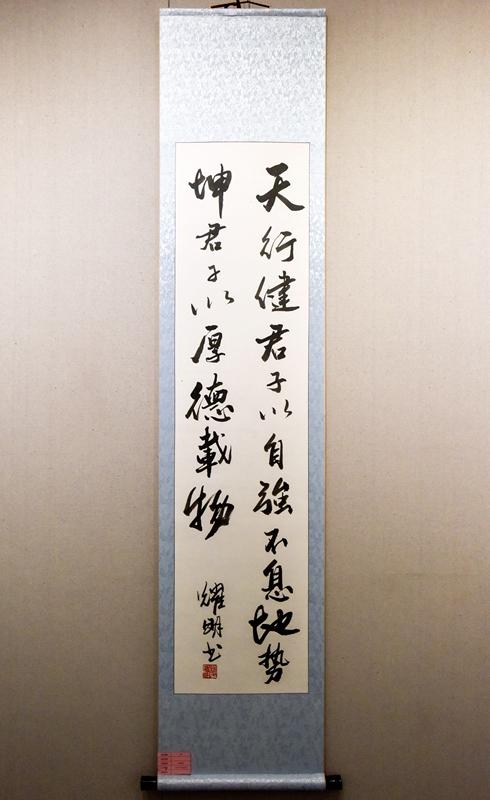 天行健君子以自強不息地势
坤君子以厚德載物
耀明书